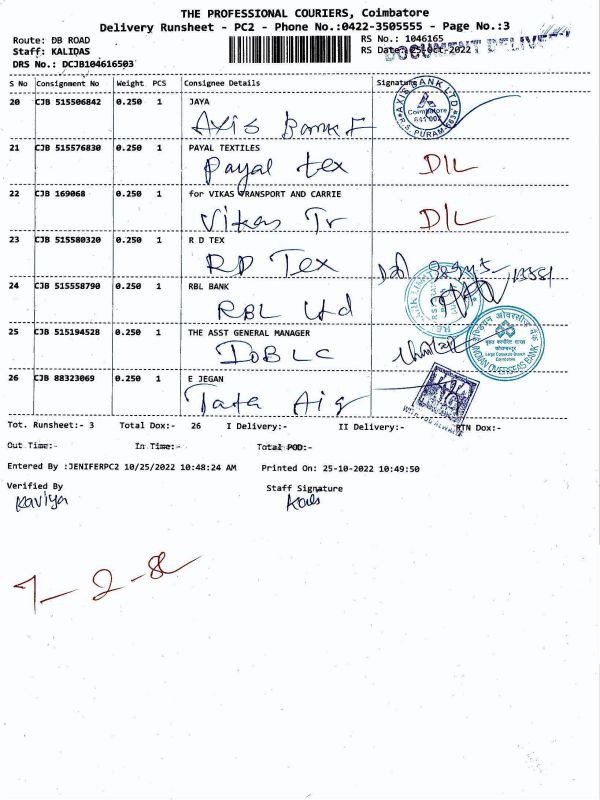 THE PROFESSIONAL COURIERS, Coimbatore
Delivery Runsheet - PC2 - Phone No.:0422-3505555 - Page No.:3
Route: DB ROAD RS No.: 1046165
Staff: KALIDAS RS Date: 25-Oct-2022
DOCUMENT DELIVERY
DRS No.: DCJB104616503
S No Consignment No Weight PCS Consignee Details Signature
20 CJB 515506842 0.250 1 JAYA
Axis Bank
AXIS BANK LTD
Coimbatore
641 002
R.S. PURAM
21 CJB 515576830 0.250 1 PAYAL TEXTILES
Payal tex D/L
22 CJB 169068 0.250 1 for VIKAS TRANSPORT AND CARRIE
Vikas Tr D/L
23 CJB 515580320 0.250 1 R D TEX
RD Tex
24 CJB 515558790 0.250 1 RBL BANK
RBL Ltd
25 CJB 515194528 0.250 1 THE ASST GENERAL MANAGER
IOB LC
इण्डियन ओवरसीज़ बैंक
Large Corporate Branch
Coimbatore
INDIAN OVERSEAS BANK
26 CJB 88323069 0.250 1 E JEGAN
Tata Aig
WITH YOU ALWAYS
Tot. Runsheet:- 3 Total Dox:- 26 I Delivery:- II Delivery:- RTN Dox:-
Out Time:- In Time:- Total POD:-
Entered By :JENIFERPC2 10/25/2022 10:48:24 AM Printed On: 25-10-2022 10:49:50
Verified By Staff Signature
Kaviya Kalis